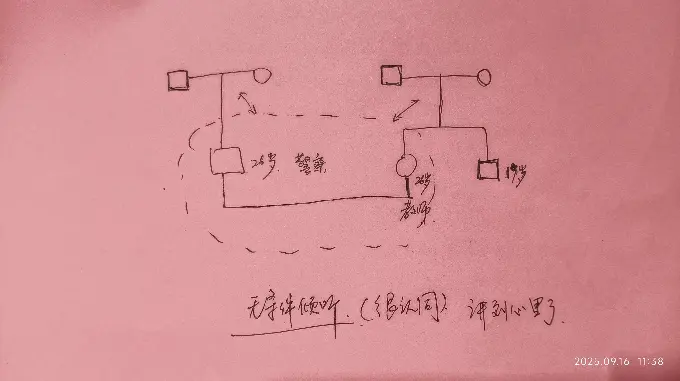 26岁 警察
26岁
19岁
教师
无条件倾听.(很认同) 讲到心里了.
2025.09.16 11:38